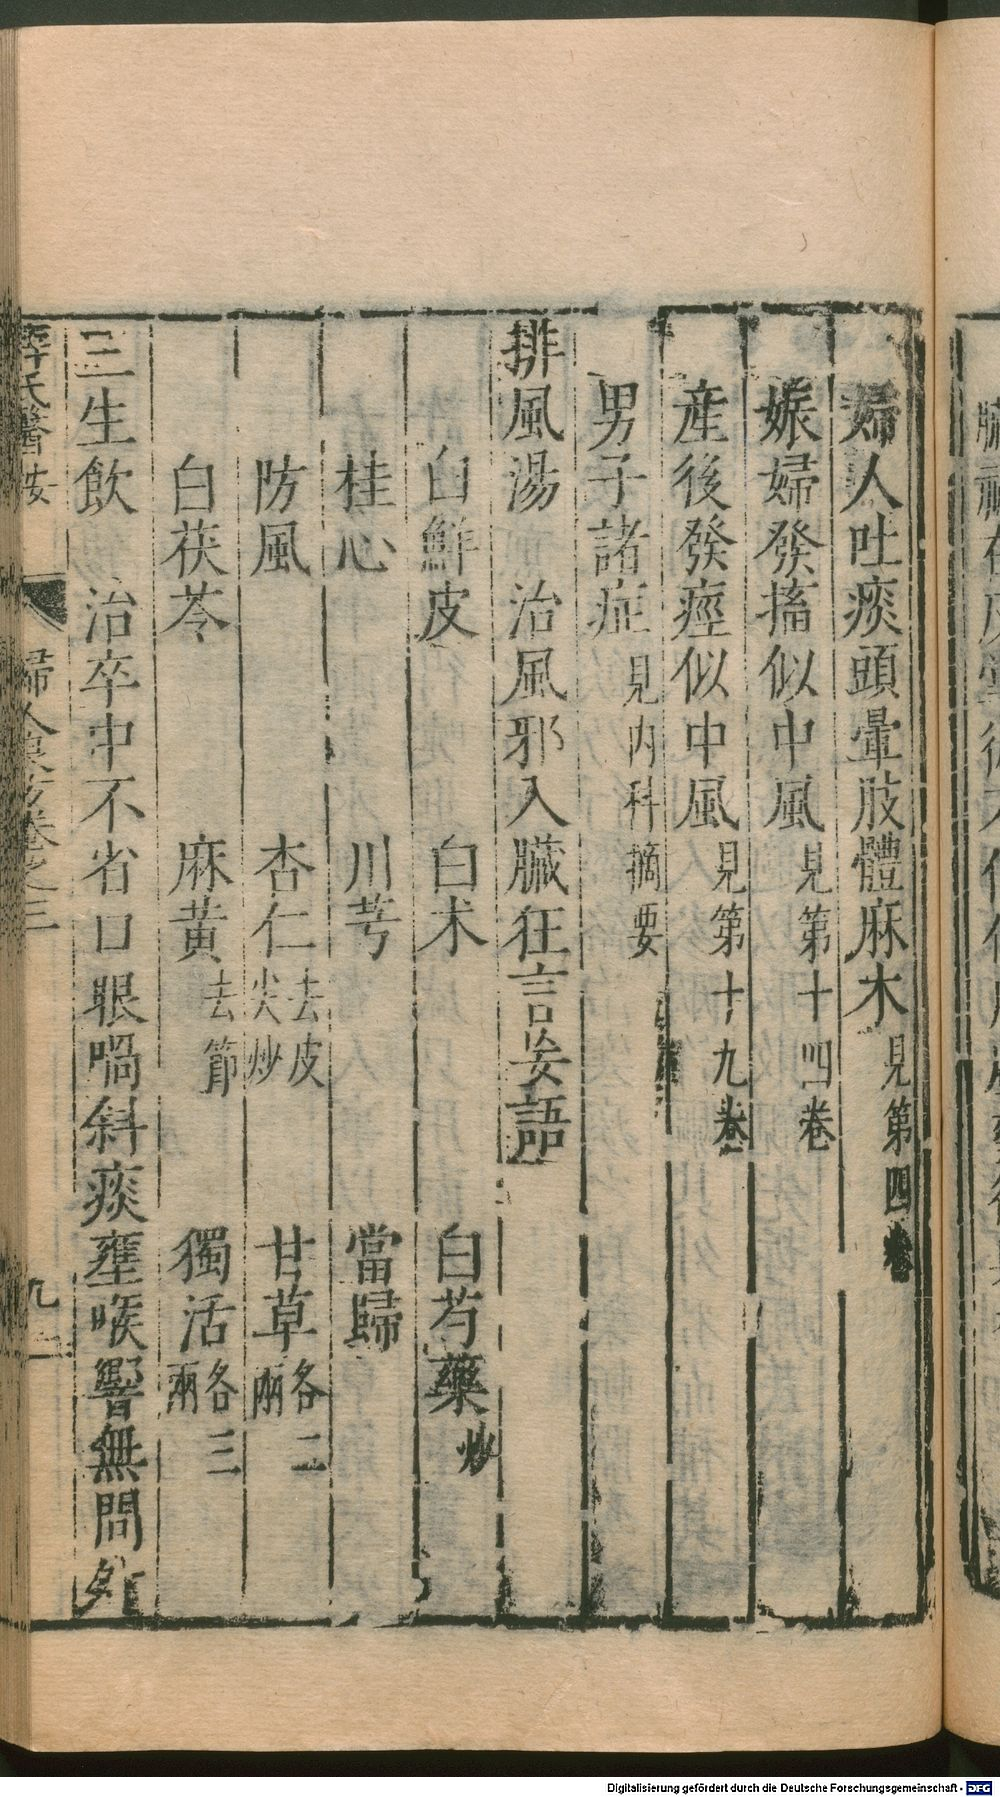 婦人吐痰頭暈肢體麻木見第四卷
娠婦發搐似中風見第十四卷
産後發痙似中風見第十九卷
男子諸症見内科摘要
排風湯 治風邪入臟狂言妄語
白鮮皮 白术 白芍藥炒
桂心 川芎 當歸
防風 杏仁去皮尖炒 甘草各二兩
白茯苓 麻黄去節 獨活各三兩
三生飲 治卒中不省口眼喎斜痰壅喉響無問外
氏醫按 婦人良方卷之三 九
Digitalisierung gefördert durch die Deutsche Forschungsgemeinschaft - DFG